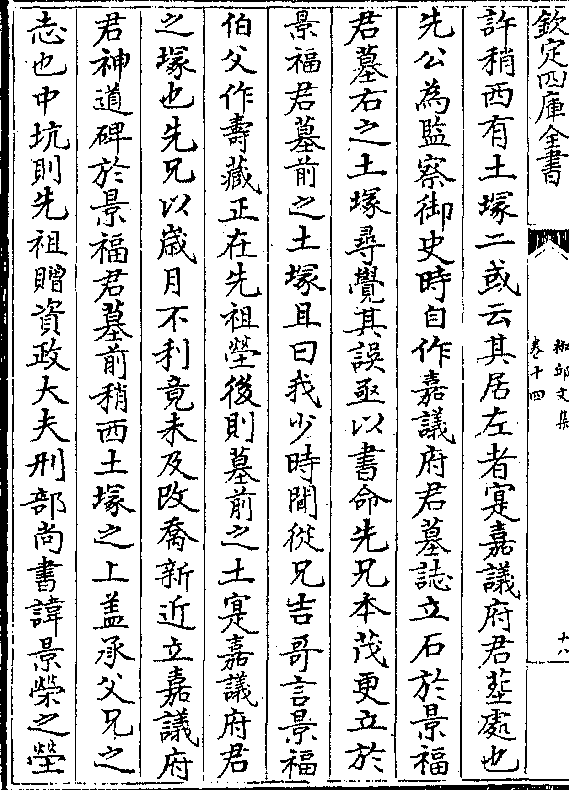 欽定四庫全書
椒邱文集
卷十四
十八
許稍西有土塚二或云其居左者寔嘉議府君塟處也
先公為監察御史時自作嘉議府君墓誌立石於景福
君墓右之土塚尋覺其誤亟以書命先兄本茂更立於
景福君墓前之土塚且曰我少時聞從兄吉哥言景福
伯父作壽藏正在先祖塋後則墓前之土寔嘉議府君
之塚也先兄以歲月不利竟未及改喬新近立嘉議府
君神道碑於景福君墓前稍西土塚之上盖承父兄之
志也中坑則先祖贈資政大夫刑部尚書諱景榮之塋